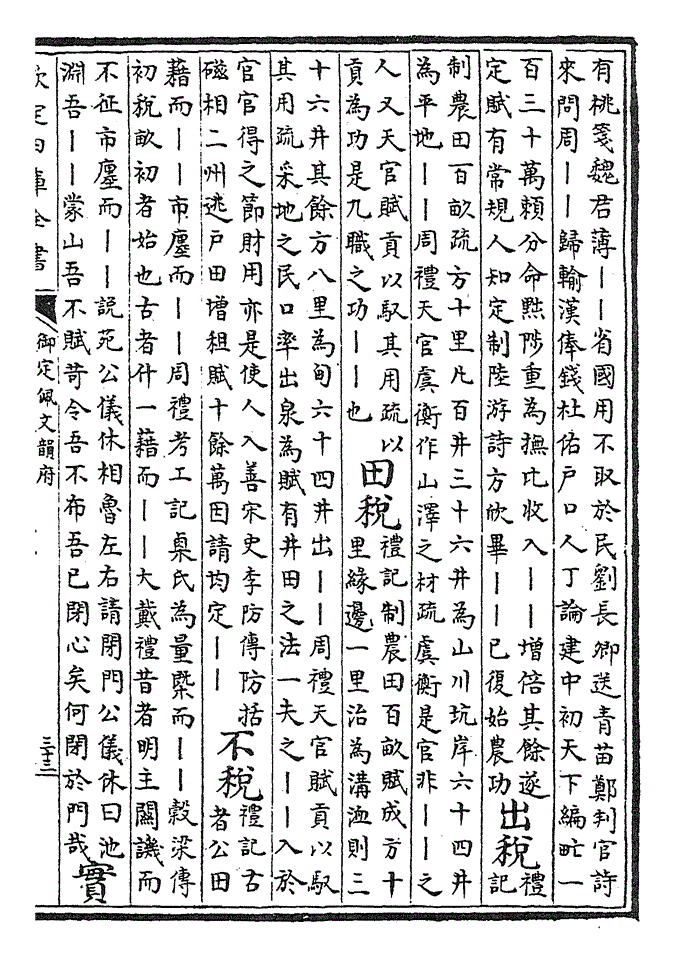 有桃箋魏君薄——省國用不取於民劉長卿送青苗鄭判官詩
來問周——歸輸漢俸錢杜佑戶口人丁論建中初天下編甿一
百三十萬賴分命黜陟重為撫比收入——增倍其餘遂
定賦有常規人知定制陸游詩方欣畢——已復始農功
出稅
禮
記
制農田百畝疏方十里凡百井三十六井為山川坑岸六十四井
為平地——周禮天官虞衡作山澤之材疏虞衡是官非——之
人又天官賦貢以馭其用疏以
貢為功是九職之功——也
田稅
禮記制農田百畝賦成方十
里緣邊一里治為溝洫則三
十六井其餘方八里為甸六十四井出——周禮天官賦貢以馭
其用疏采地之民口率出泉為賦有井田之法一夫之——入於
官官得之節財用亦是使人入善宋史李防傳防括
磁相二州逃戶田增租賦十餘萬因請均定——
不稅
禮記古
者公田
藉而——市廛而——周禮考工記㮚氏為量槩而——穀梁傳
初稅畝初者始也古者什一藉而——大戴禮昔者明主關譏而
不征市廛而——說苑公儀休相魯左右請閉門公儀休曰池
淵吾——蒙山吾不賦苛令吾不布吾已閉心矣何閉於門哉
實
欽定四庫全書
御定佩文韻府
三十三